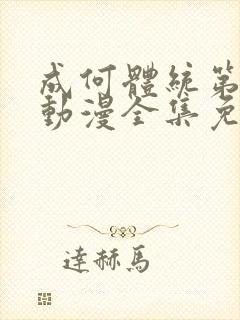 成何體統第
動漫全集免
達赫馬